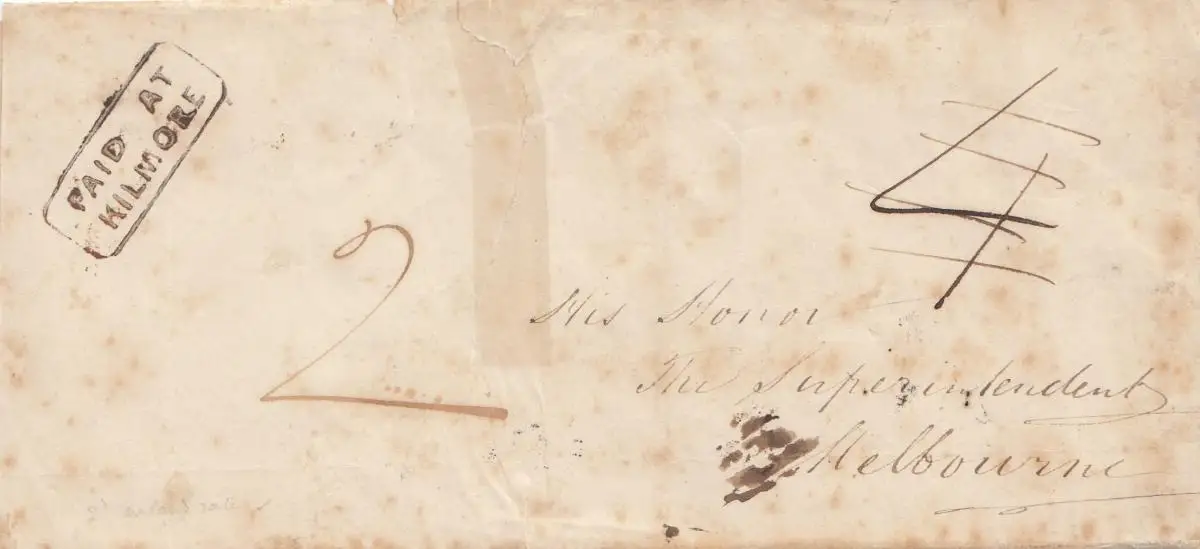 PAID AT
KILMORE
4
2
His Honor
The Superintendent
Melbourne